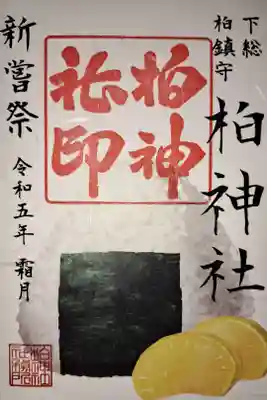 下総
柏鎮守
柏神社
柏神
社印
新嘗祭
令和五年 霜月